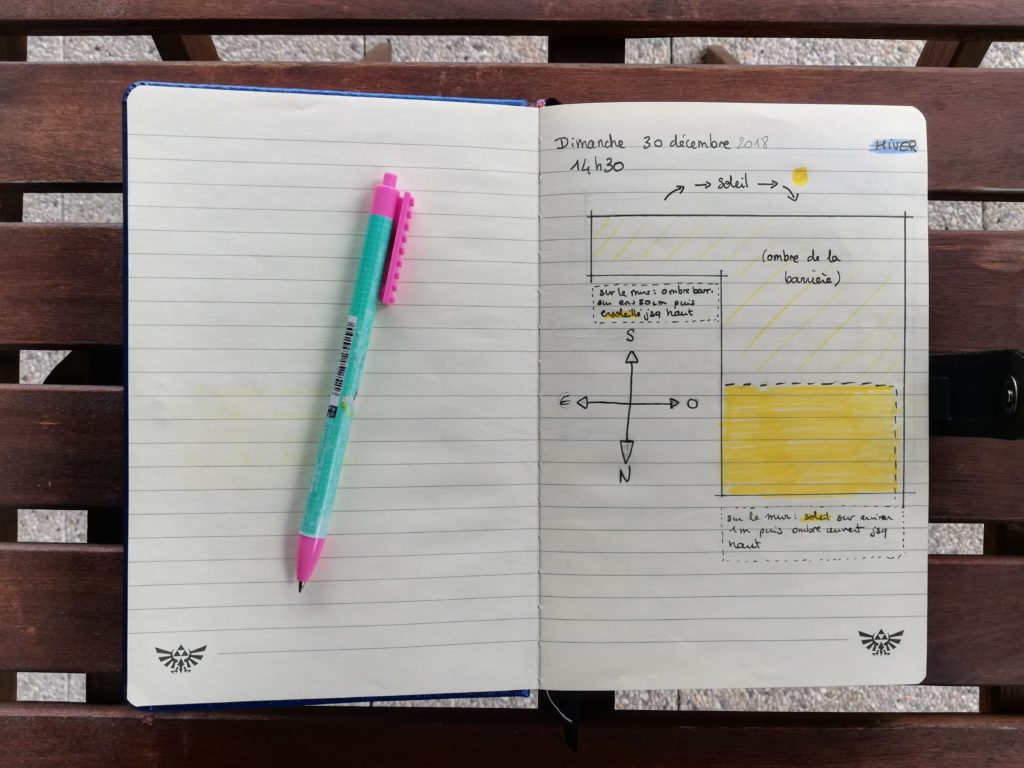 Dimanche 30 décembre 2018
HIVER
14h30
→ soleil →
(ombre de la
barrière)
sur le mur: ombre barr.
sur env 50 cm puis
ensoleillé jsq haut
S
E
O
N
sur le mur: soleil sur environ
1m puis ombre auvent jsq
haut